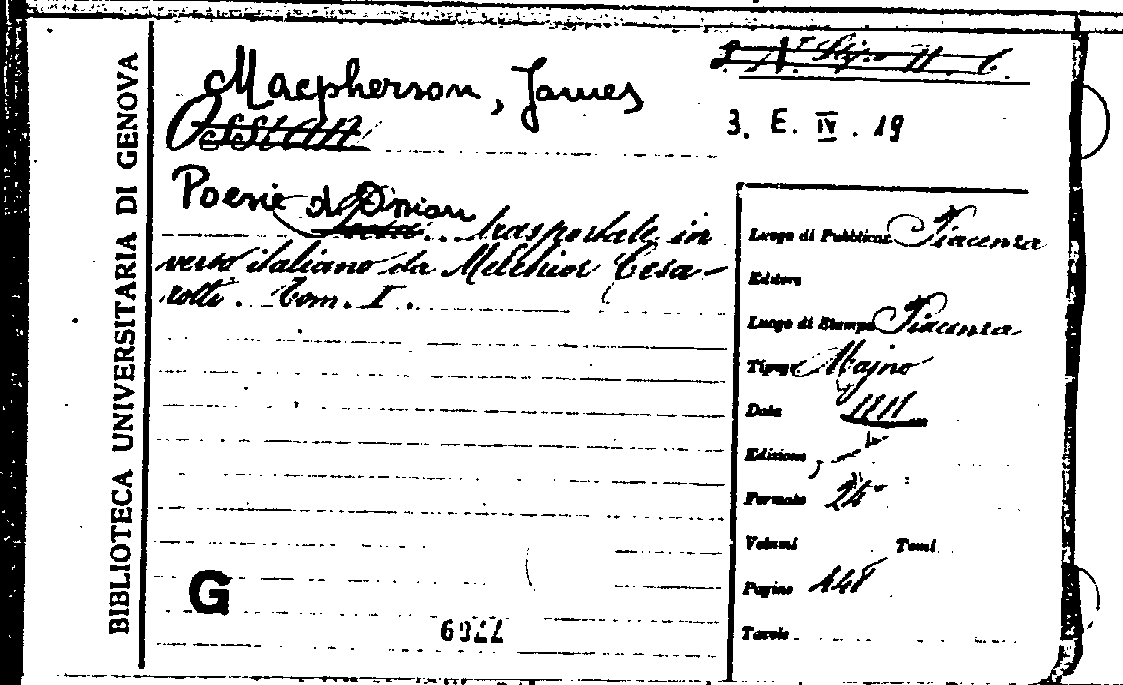 BIBLIOTECA UNIVERSITARIA DI GENOVA
Macpherson, James
Ossian
3. E. IV. 19
Poesie d'Ossian trasportate in
verso italiano da Melchior Cesa-
rotti. Tom. I.
Luogo di Pubblicaz. Piacenza
Editore
Luogo di Stampa Piacenza
Tipogr. Majno
Data
Edizione
Formato 24°
Volumi Tomi
Pagine 148
Tavole
G
6977